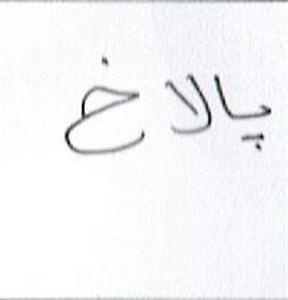 پالاخ